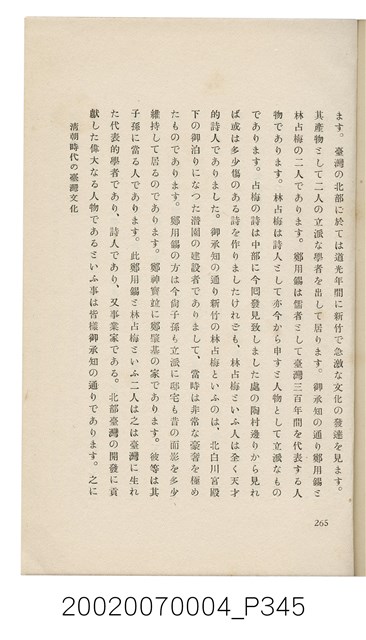 ます。臺灣の北部に於ては道光年間に新竹で急激な文化の發達を見ます。
其產物として二人の立派な學者を出して居ります。御承知の通り鄭用錫と
林占梅の二人であります。鄭用錫は儒者として臺灣三百年間を代表する人
物であります。林占梅は詩人として亦今から申すと人物として立派なもの
であります。占梅の詩は中部に今囘發見致しました處の陶村邊りから見れ
ば或は多少傷のある詩を作りましたけれども、林占梅といふ人は全く天才
的詩人でありました。御承知の通り新竹の林占梅といふのは、北白川宮殿
下の御泊りになつた潛園の建設者でありまして、當時は非常な豪奢を極め
たものであります。鄭用錫の方は今尙子孫も立派に邸宅も昔の面影を多少
維持して居るのであります。鄭神寶竝に鄭肇基の家であります。彼等は其
子孫に當る人であります。此鄭用錫と林占梅といふ二人は之は臺灣に生れ
た代表的學者であり、詩人であり、又事業家である。北部臺灣の開發に貢
獻した偉大なる人物であるといふ事は皆樣御承知の通りであります。之に
清朝時代の臺灣文化
265
20020070004_P345